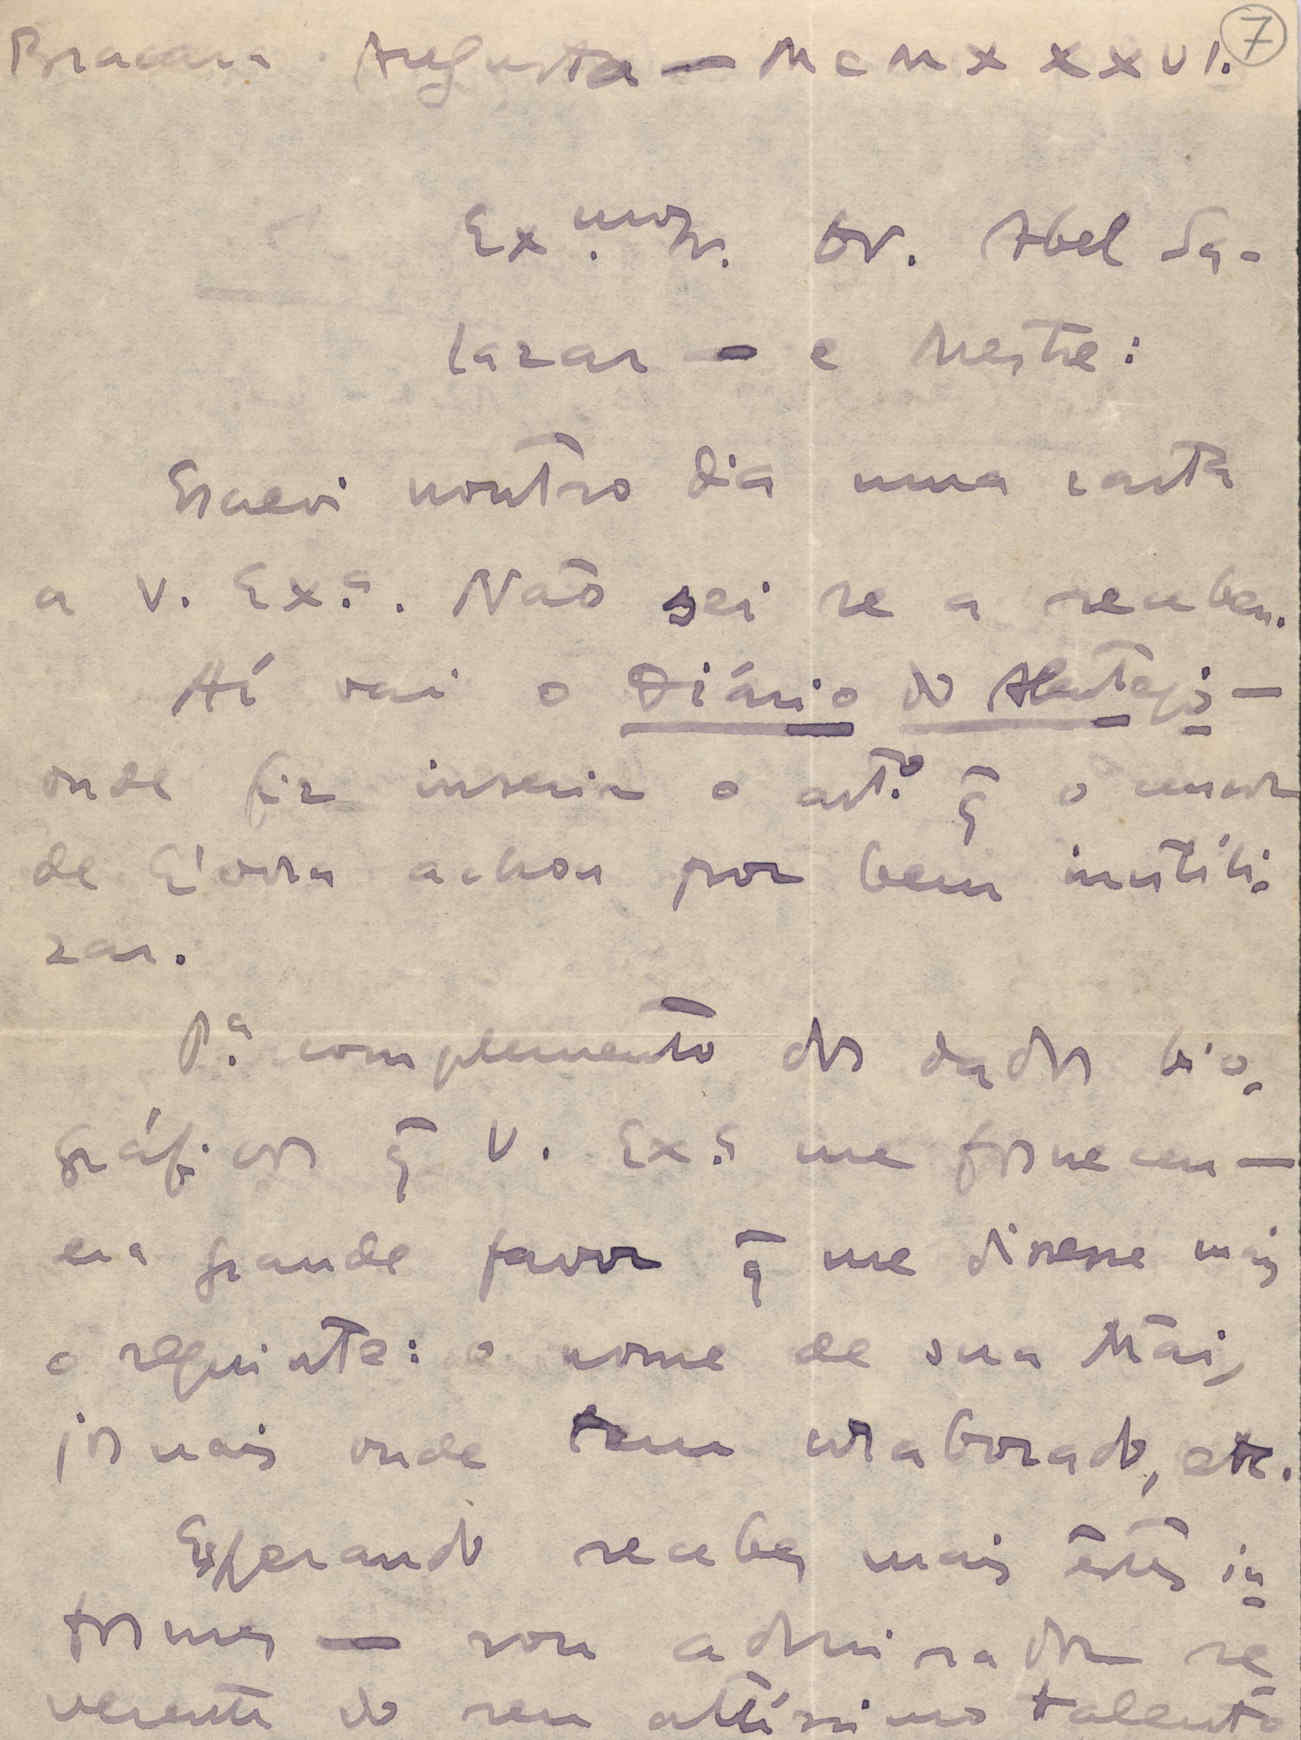 7
Bracara Augusta — MCMXXXVI.
Ex.mo Sr. Dr. Abel Sa-
lazar — e Mestre:
Escrevi noutro dia uma carta
a V. Ex.ª. Não sei se a recebeu.
Aí vai o Diário do Alentejo —
onde fiz inserir o art.º q̃ o censor
de Évora achou por bem inutili-
zar.
P.ª complemento dos dados bio-
gráficos q̃ V. Ex.ª me forneceu —
era grande favor q̃ me dissesse mais
o seguinte: o nome de sua Mãi,
jornais onde tem colaborado, etc.
Esperando receber mais êstes in-
formes — sou admirador re
verente do seu altíssimo talento